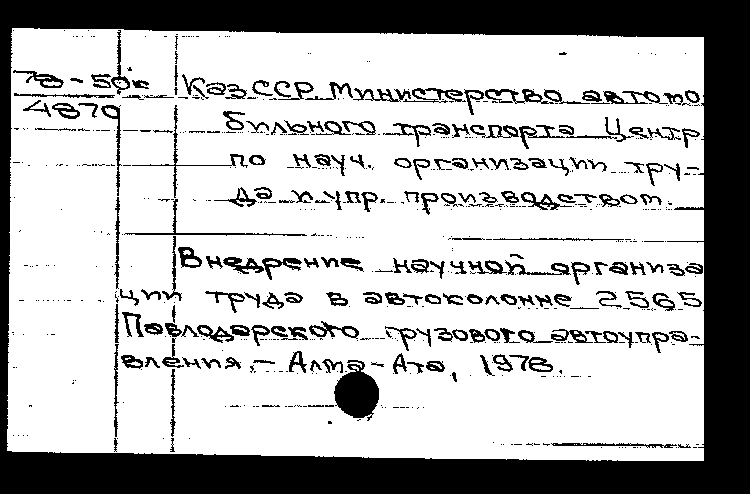 78-50к
4870
КазССР. Министерство автомо
бильного транспорта. Центр
по науч. организации тру-
да и упр. производством.
Внедрение научной организа
ции труда в автоколонне 2565
Павлодарского грузового автоупра-
вления. - Алма-Ата, 1978.